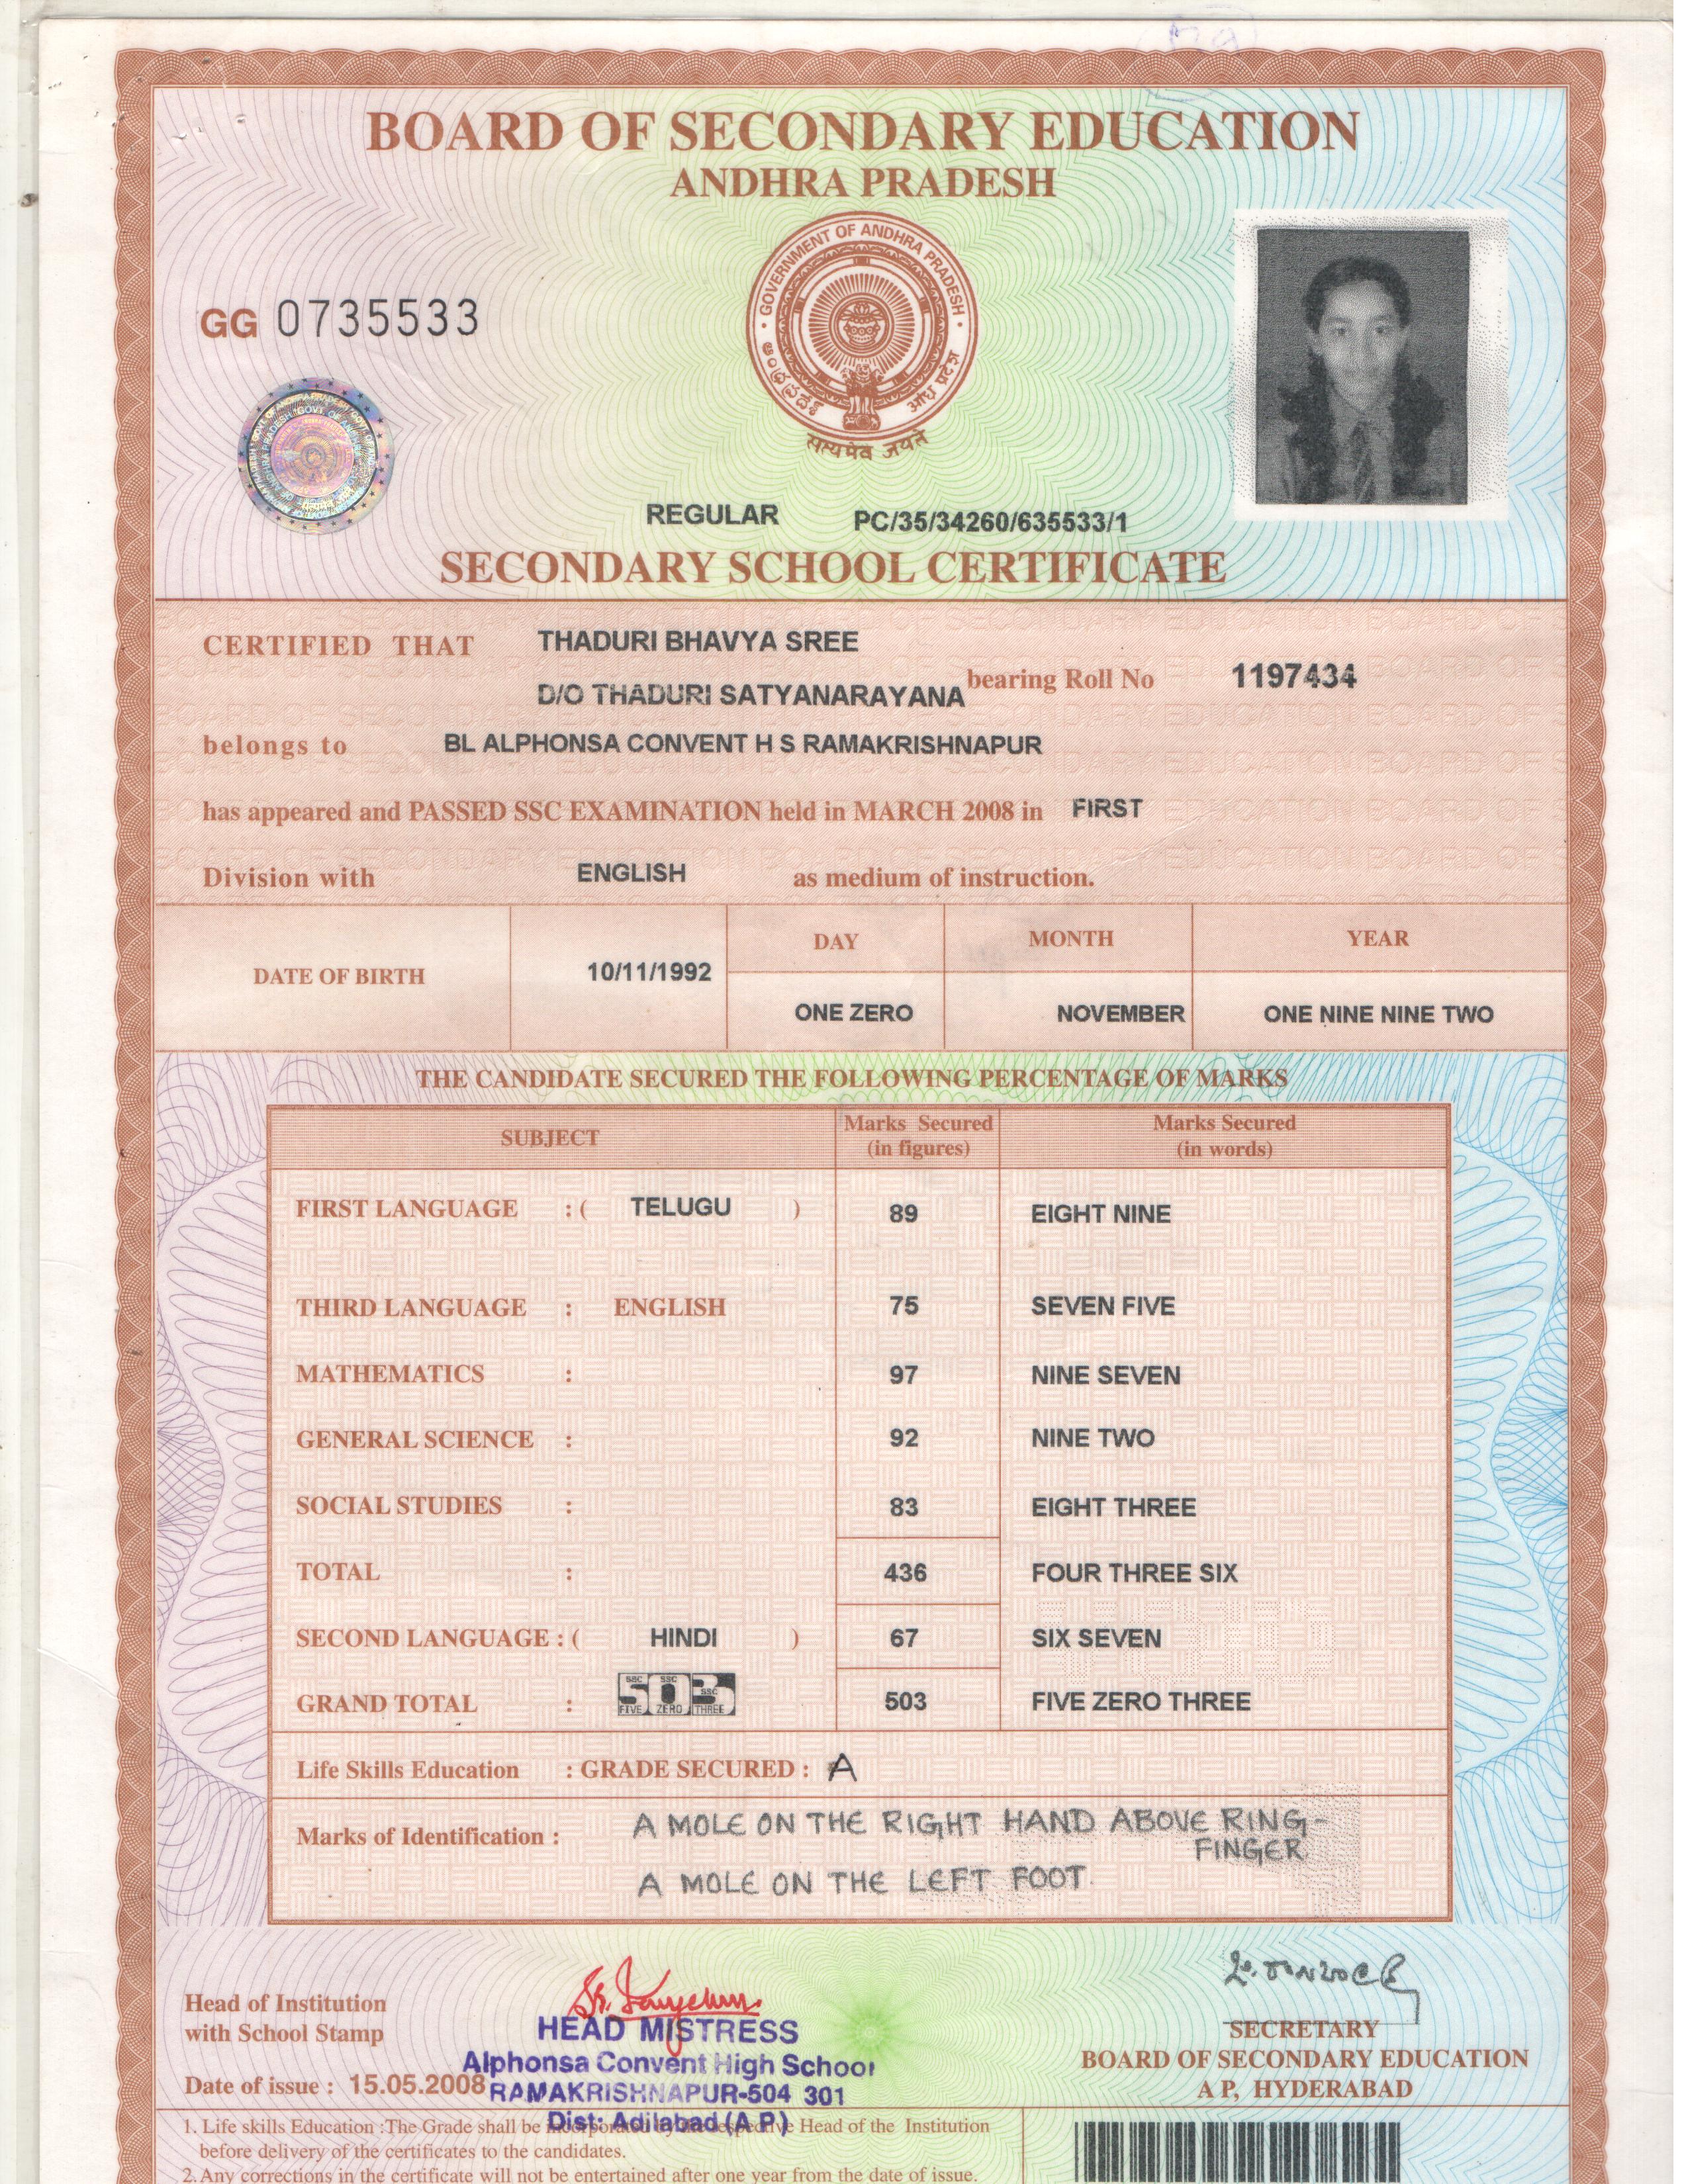 BOARD OF SECONDARY EDUCATION
ANDHRA PRADESH
GOVERNMENT OF ANDHRA PRADESH
ఆంధ్రప్రదేశ్
आंध्र प्रदेश
सत्यमेव जयते
GG 0735533
REGULAR PC/35/34260/635533/1
SECONDARY SCHOOL CERTIFICATE
CERTIFIED THAT THADURI BHAVYA SREE
D/O THADURI SATYANARAYANA bearing Roll No 1197434
belongs to BL ALPHONSA CONVENT H S RAMAKRISHNAPUR
has appeared and PASSED SSC EXAMINATION held in MARCH 2008 in FIRST
Division with ENGLISH as medium of instruction.
DATE OF BIRTH 10/11/1992 DAY MONTH YEAR
ONE ZERO NOVEMBER ONE NINE NINE TWO
THE CANDIDATE SECURED THE FOLLOWING PERCENTAGE OF MARKS
SUBJECT Marks Secured (in figures) Marks Secured (in words)
FIRST LANGUAGE : ( TELUGU ) 89 EIGHT NINE
THIRD LANGUAGE : ENGLISH 75 SEVEN FIVE
MATHEMATICS : 97 NINE SEVEN
GENERAL SCIENCE : 92 NINE TWO
SOCIAL STUDIES : 83 EIGHT THREE
TOTAL : 436 FOUR THREE SIX
SECOND LANGUAGE : ( HINDI ) 67 SIX SEVEN
SSC SSC SSC
GRAND TOTAL : 503 503 FIVE ZERO THREE
FIVE ZERO THREE
Life Skills Education : GRADE SECURED : A
Marks of Identification : A MOLE ON THE RIGHT HAND ABOVE RING-
FINGER
A MOLE ON THE LEFT FOOT.
Head of Institution
with School Stamp
HEAD MISTRESS
Alphonsa Convent High School
RAMAKRISHNAPUR-504 301
Dist: Adilabad (A.P.)
Date of issue : 15.05.2008
SECRETARY
BOARD OF SECONDARY EDUCATION
A P, HYDERABAD
1. Life skills Education :The Grade shall be incorporated by the respective Head of the Institution
before delivery of the certificates to the candidates.
2. Any corrections in the certificate will not be entertained after one year from the date of issue.